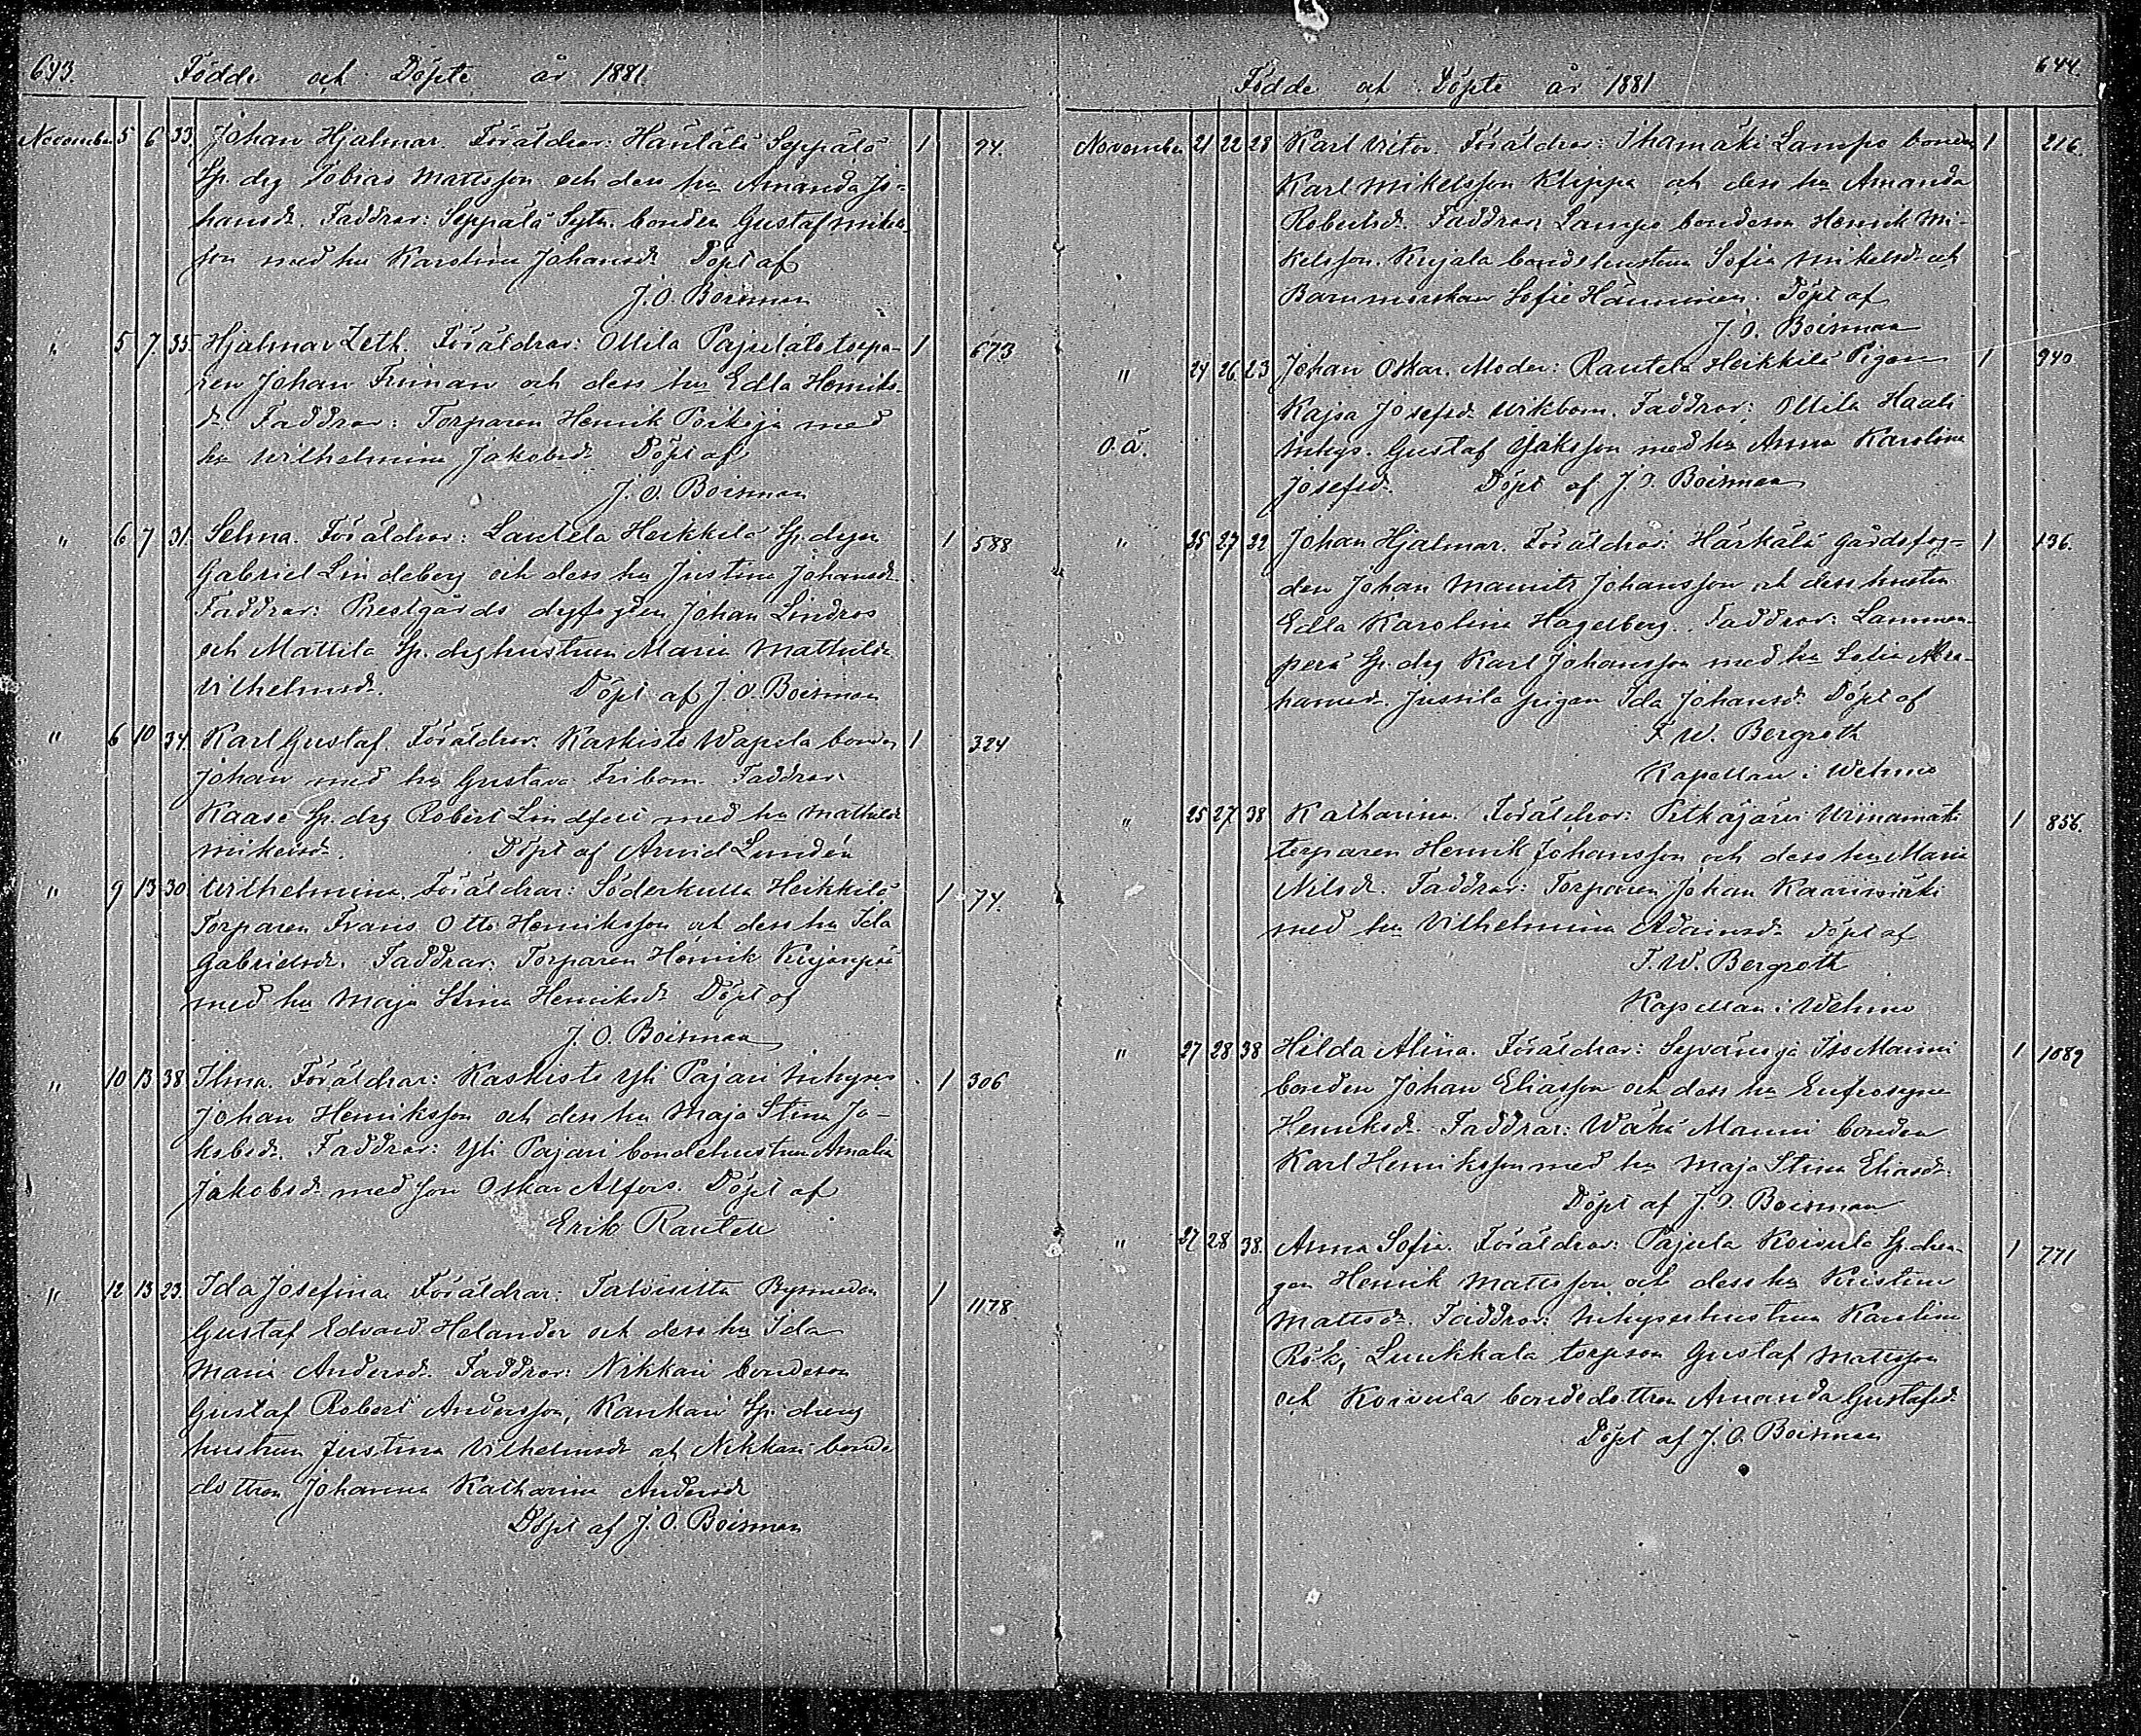 643. Födde och Döpte år 1881.
November 5 6 33. Johan Hjalmar. Föräldrar: Häntälä Seppälä 1 94.
Sp. drg Tobias Mattsson och dess hu Amanda Jo-
hansdr. Faddrar: Seppälä Sytn. bonden Gustaf Mikels-
son med hu Karolina Johansdr Döpt af
J. O. Boisman
" 5 7 35. Hjalmar Zeth. Föräldrar: Ollila Pajulato torpa- 1 673
ren Johan Friman och dess hu Edla Henriks-
dr. Faddrar: Torparen Henrik Poikeja med
hu Wilhelmina Jakobsdr Döpt af
J. O. Boisman
" 6 7 31. Selma. Föräldrar: Lautela Heikkilä Sp. drgn 1 588
Gabriel Lindeberg och dess hu Justina Johansdr
Faddrar: Prestgårds drgfogden Johan Lindros
och Mattila Sp. drghustrun Maria Mathilda
Vilhelmsdr. Döpt af J. O. Boisman
" 6 10 34. Karl Gustaf. Föräldrar: Kaskisto Wapela bonden 1 324
Johan med hu Gustava Fribom. Faddrar:
Kaase Sp. drg Robert Lindfors med hu Mathilda
Mikelsdr. Döpt af Arvid Lundén
" 9 13 30 Wilhelmina. Föräldrar: Söderkulla Heikkilä 1 74.
Torparen Frans Otto Henriksson och dess hu Ida
Gabrielsdr. Faddrar: Torparen Henrik Kujanpää
med hu Maja Stina Henriksdr Döpt af
J. O. Boisman
" 10 13 38. Ilma. Föräldrar: Kaskisto Yli Pajari Inhyses 1 306
Johan Henriksson och dess hu Maja Stina Ja-
kobsdr. Faddrar: Yli Pajari bondehustrun Amalia
Jakobsdr med son Oskar Alfors. Döpt af
Erik Rautell
" 12 13 23. Ida Josefina Föräldrar: Talvisilta Bysmeden 1 1178
Gustaf Edvard Helander och dess hu Ida
Maria Andersdr. Faddrar: Nikkari bondeson
Gustaf Robert Andersson, Kankari Sp. dreng
hustrun Justina Vilhelmsdr och Nikkari bonde
dottren Johanna Katharina Andersdr
Döpt af J. O. Boisman
Födde och Döpte år 1881 644.
November 21 22 28 Karl Victor. Föräldrar: Ihamäki Lampo bonden 1 216.
Karl Mikelsson Klippa och dess hu Amanda
Robertsdr. Faddrar: Lampo bondeson Henrik Mi-
kelsson. Kujala bondehustrun Sofia Mikelsdr och
Barnmorskan Sofie Hänninen. Döpt af
J. O. Boisman
" 24 26 23 Johan Oskar. Moder: Rautela Heikkilä Pigan 1 940
Kajsa Josefsdr Wikbom. Faddrar: Ollila Haali
o. ä. Inhys. Gustaf Isaksson med hu Anna Karolina
Josefsdr. Döpt af J. O. Boisman
" 25 27 32 Johan Hjalmar. Föräldrar: Härkälä Gårdsfog- 1 136.
den Johan Mauritz Johansson och dess hustru
Edla Karolina Hagelberg. Faddrar: Lammen-
perä Sp. drg Karl Johansson med hu Sofia Abra-
hamsdr. Jussila pigan Ida Johansdr. Döpt af
F. W. Bergroth
Kapellan i Wehmo
" 25 27 38 Katharina. Föräldrar: Pitkäjärvi Uunamäki 1 856.
torparen Henrik Johansson och dess hu Maria
Nilsdr. Faddrar: Torparen Johan Kaarismäki
med hu Vilhelmina Adamsdr Döpt af
F. W. Bergroth
Kapellan i Wehmo
" 27 28 38 Hilda Alina. Föräldrar: Syvänoja Iso Manni 1 1089
bonden Johan Eliasson och dess hu Eufrosyne
Henriksdr. Faddrar: Wähä Manni bonden
Karl Henriksson med hu Maja Stina Eliasdr.
Döpt af J. O. Boisman
" 27 28 38. Anna Sofia. Föräldrar: Pajula Koivula Sp. dren- 1 771
gen Henrik Mattsson och dess hu Kristina
Mattsdr. Faddrar: Inhyseshustrun Karolina
Rök, Luukkala torpson Gustaf Mattsson
och Koivula bondedottren Amanda Gustafsdr.
Döpt af J. O. Boisman